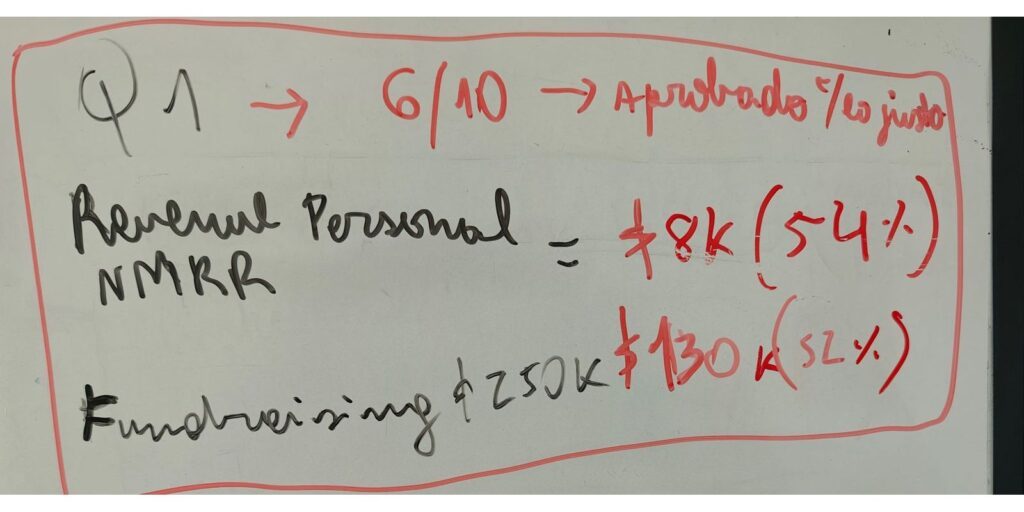 Q1 → 6/10 → Aprobado c/lo justo
Revenue Personal = $8K (54%)
NMRR
Fundraising $250K $130K (52%)